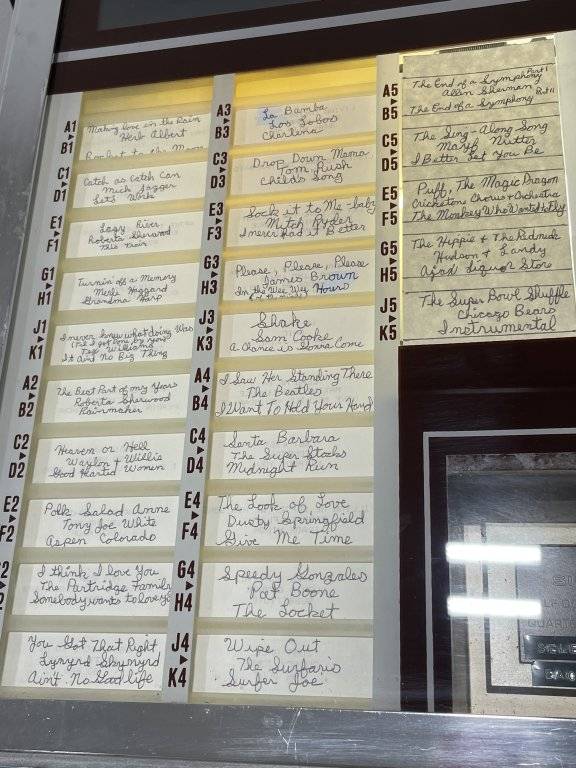 A1
B1
Making love in the Rain
Herb Albert
Rocket to the Moon
C1
D1
Catch as Catch Can
Mick Jagger
Let's Work
E1
F1
Lazy River
Roberta Sherwood
This Train
G1
H1
Turnin' off a Memory
Merle Haggard
Grandma Harp
J1
K1
I never knew what doing Was
(Til I got Done By You)
Williams
It Ain't No Big Thing
A2
B2
The Best Part of my Years
Roberta Sherwood
Rainmaker
C2
D2
Heaven or Hell
Waylon + Willie
Good Hearted Women
E2
F2
Polk Salad Anne
Tony Joe White
Aspen Colorado
2
I think I love You
The Partridge Family
Somebody wants to love you
You Got That Right
Lynyrd Skynyrd
Ain't No Good life
A3
B3
La Bamba
Los Lobos
Charlena
C3
D3
Drop Down Mama
Tom Rush
Child's Song
E3
F3
Sock it to Me-baby
Mitch Ryder
I never Had it Better
G3
H3
Please, Please, Please
James Brown
In the Wee Wee Hours
J3
K3
Shake
Sam Cooke
A Chance is Gonna Come
A4
B4
I Saw Her Standing There
The Beatles
I Want To Hold Your Hand
C4
D4
Santa Barbara
The Super Stocks
Midnight Run
E4
F4
The Look of Love
Dusty Springfield
Give Me Time
G4
H4
Speedy Gonzales
Pat Boone
The Locket
J4
K4
Wipe Out
The Surfaris
Surfer Joe
A5
B5
The End of a Symphony Part I
Allan Sherman
The End of a Symphony Part II
C5
D5
The Sing-Along Song
Mayf Nutter
I Better Let You Be
E5
F5
Puff, The Magic Dragon
Cricketone Chorus + Orchestra
The Monkey Who Wanted to Fly
G5
H5
The Hippie + The Redneck
Hudson + Landry
Ajax Liquor Store
J5
K5
The Super Bowl Shuffle
Chicago Bears
Instrumental